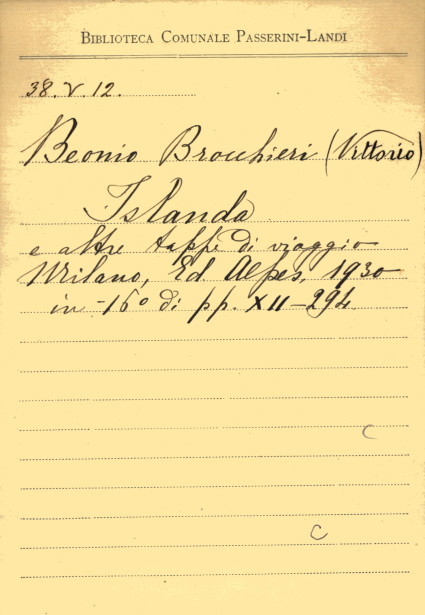 BIBLIOTECA COMUNALE PASSERINI-LANDI
38.V.12.
Beonio Brocchieri (Vittorio)
Islanda
e altre tappe di viaggio
Milano, Ed Alpes, 1930
in -16° di pp. XII-294
C
C